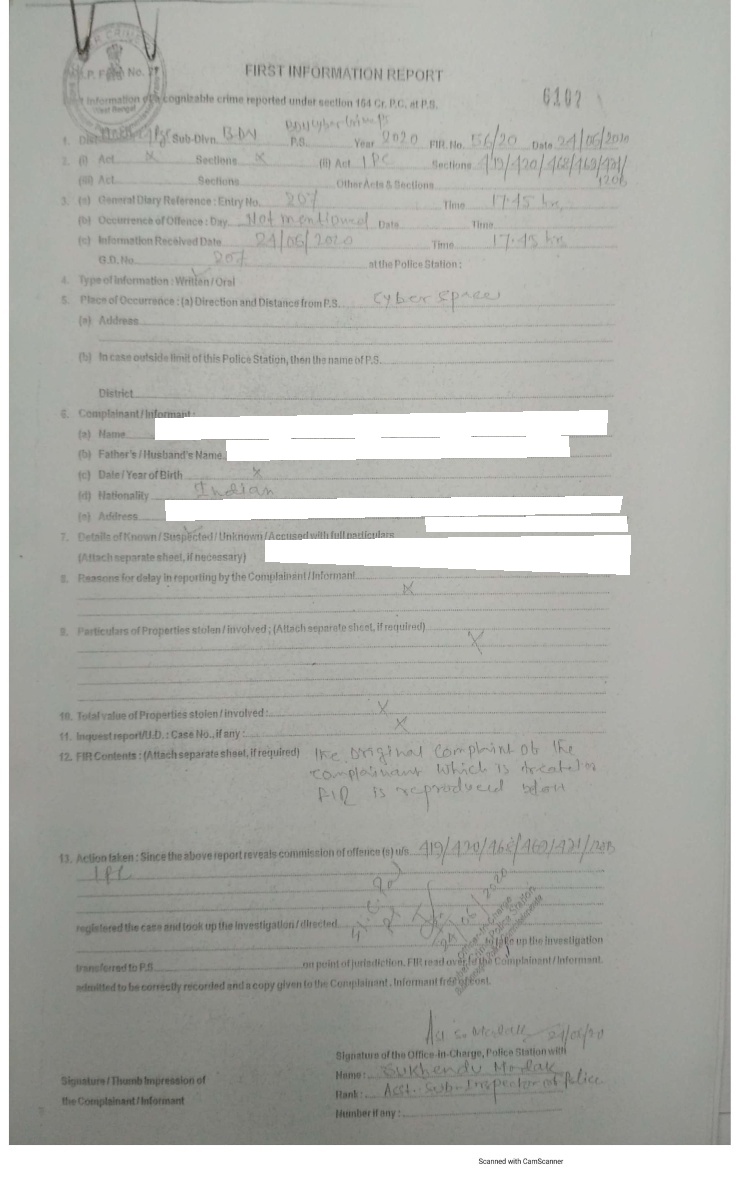 FIRST INFORMATION REPORT
First Information of a cognizable crime reported under section 154 Cr. P.C. at P.S.
6102
1. District Sub-Divn. BDN P.S. Year 2020 FIR No. 56/20 Date 24/06/2020
2. (i) Act X Sections X (ii) Act IPC Sections 419/420/468/469/471/
120B
(iii) Act Sections Other Acts & Sections
3. (a) General Diary Reference : Entry No. 207 Time 17.45 hrs
(b) Occurrence of Offence : Day Not mentioned Date Time
(c) Information Received Date 24/06/2020 Time 17.45 hrs
G.D. No. 207 at the Police Station :
4. Type of Information : Written / Oral
5. Place of Occurrence : (a) Direction and Distance from P.S. Cyber Space
(a) Address
(b) In case outside limit of this Police Station, then the name of P.S.
District
6. Complainant / Informant :
(a) Name
(b) Father's / Husband's Name
(c) Date / Year of Birth X
(d) Nationality Indian
(e) Address
7. Details of Known / Suspected / Unknown / Accused with full particulars
(Attach separate sheet, if necessary)
8. Reasons for delay in reporting by the Complainant / Informant
X
9. Particulars of Properties stolen / involved ; (Attach separate sheet, if required)
X
10. Total value of Properties stolen / involved : X
11. Inquest report/U.D. : Case No., if any : X
12. FIR Contents : (Attach separate sheet, if required) The original complaint of the
complainant which is treated as
FIR is reproduced below
13. Action taken : Since the above report reveals commission of offence (s) u/s. 419/420/468/469/471/120B
IPC
registered the case and took up the investigation / directed
24/06/2020
to take up the Investigation
transferred to P.S. on point of jurisdiction. FIR read over to the Complainant / Informant.
admitted to be correctly recorded and a copy given to the Complainant. Informant free of cost.
Signature of the Office-in-Charge, Police Station with
Name : Sukhendu Modak
Signature / Thumb Impression of
Rank : Asst. Sub-Inspector of Police
the Complainant / Informant
Number if any :
Scanned with CamScanner